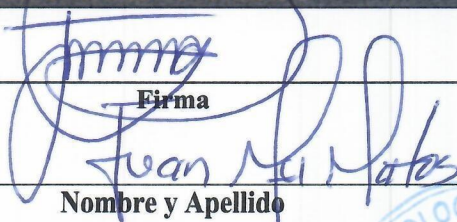 Firma
Juan Ml Matos
Nombre y Apellido